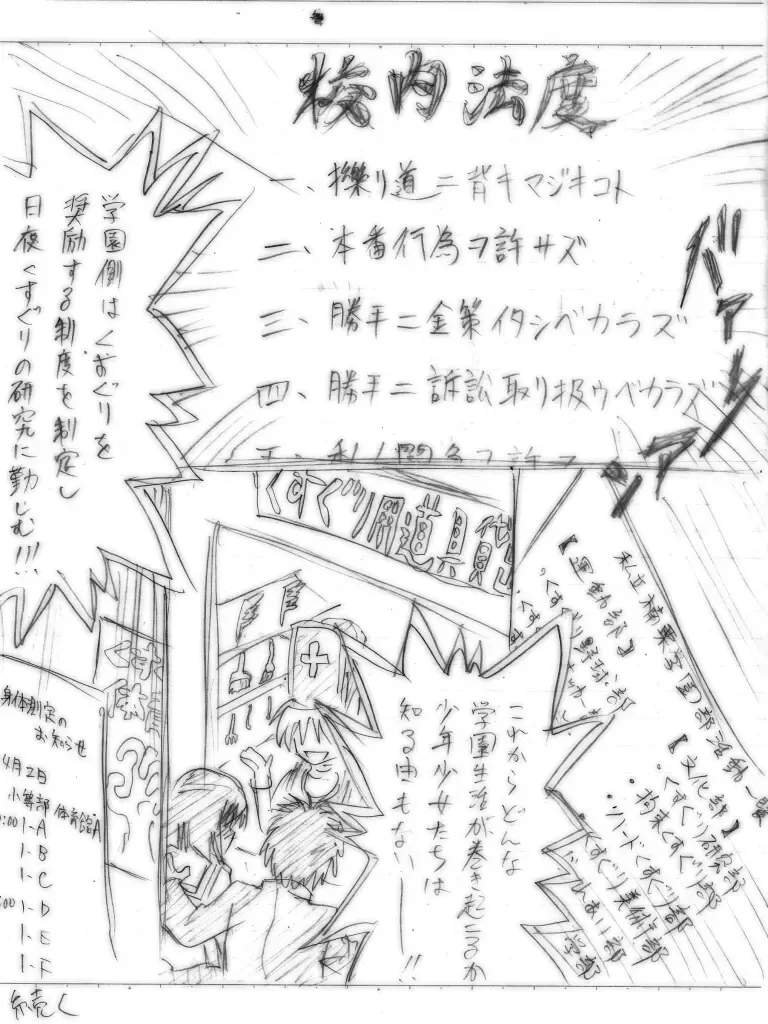 校内法度
一、擽り道ニ背キマジキコト
二、本番行為ヲ許サズ
三、勝手ニ金策イタシベカラズ
四、勝手ニ訴訟取リ扱ウベカラズ
五、私ノ闘争ヲ許サズ
バァァーン
学園側はくすぐりを
奨励する制度を制定し
日夜くすぐりの研究に勤しむ!!!
くすぐり用道具
私立 学園部活動一覧
【運動部】
・くすぐり野球部
【文化部】
・くすぐり研究部
・拘束くすぐり部
・ソードくすぐり部
くすぐり美術部
くす
体育
身体測定の
お知らせ
4月2日
小等部 体育館A
1-A
1-B
1-C
1-D
1-E
1-F
これからどんな
学園生活が巻き起こるか
少年少女たちは
知る由もない――!!
続く